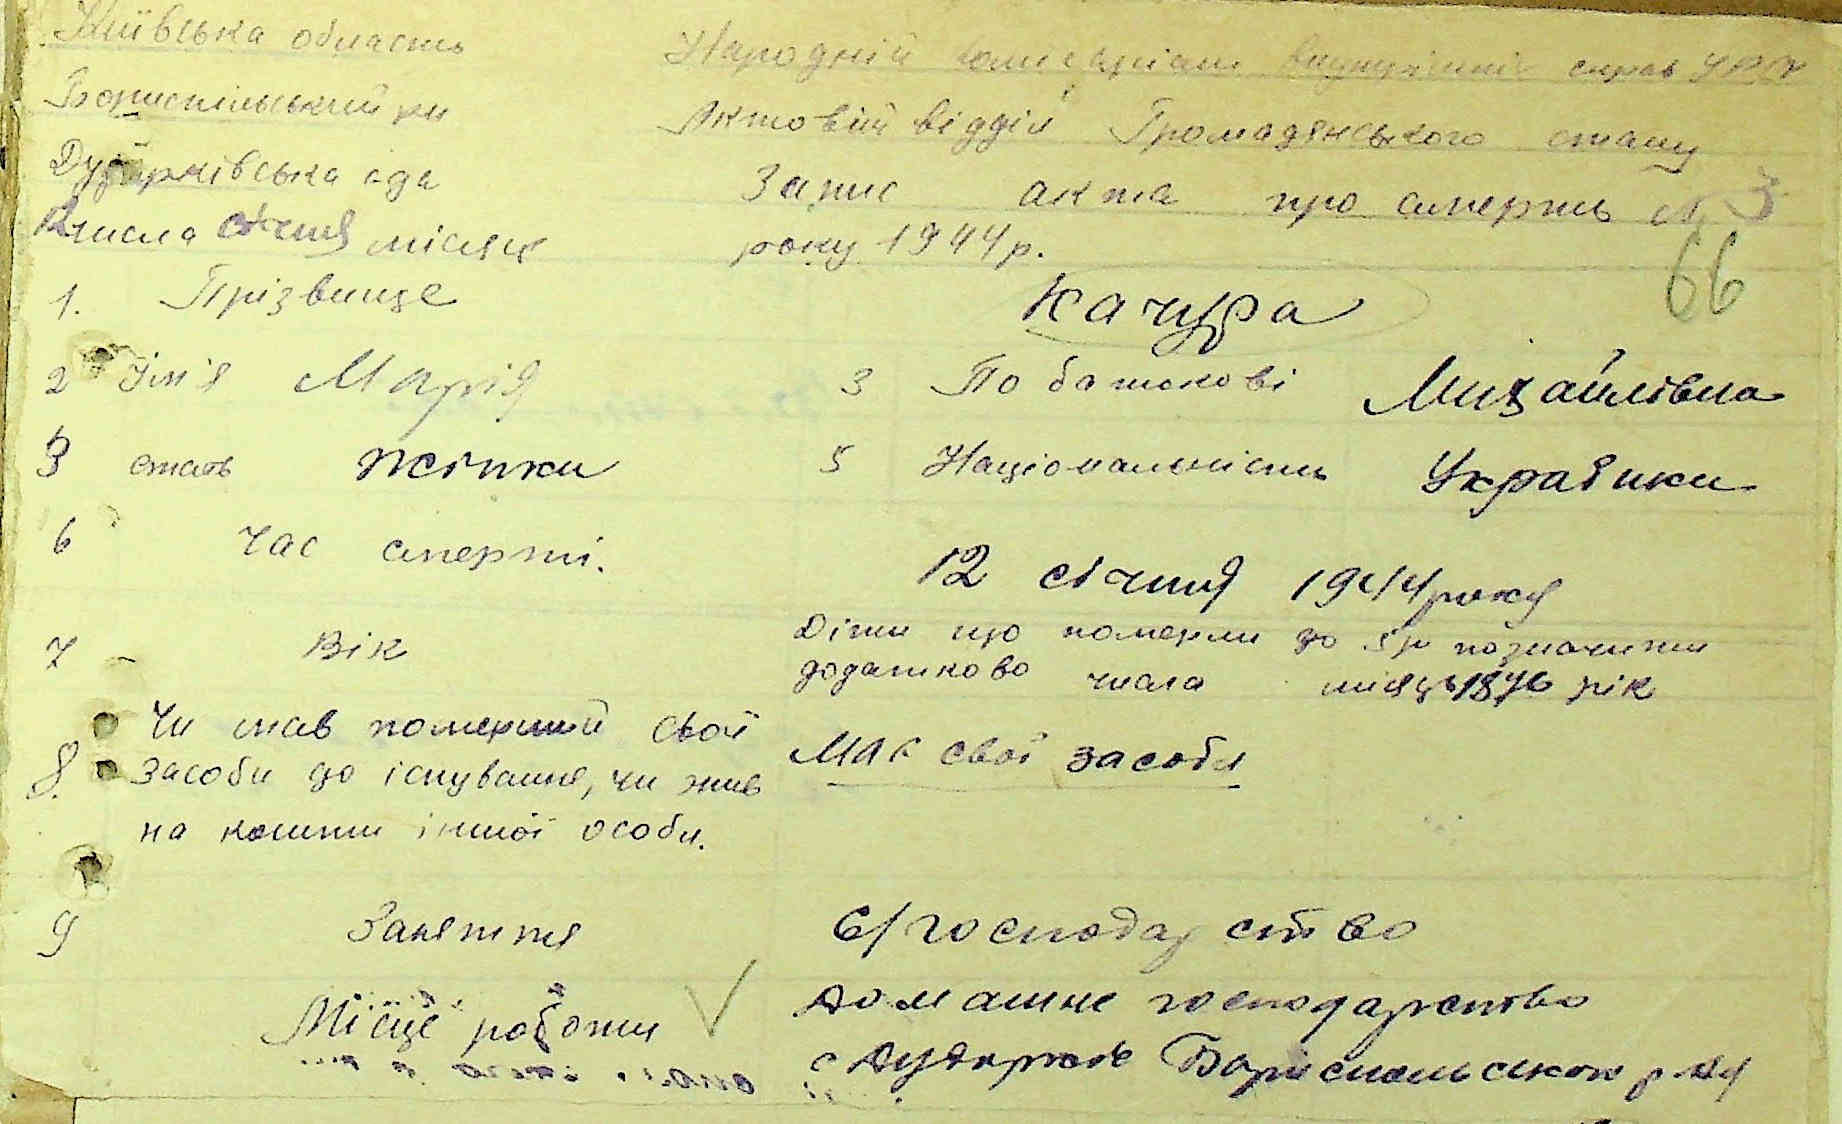 Київська область
Народній комісаріат внутрішніх справ УРСР
Бориспільський рн
Актовий відділ Громадянського стану
Дударківська рада
Запис акта про смерть № 3
числа січня місяця
року 1944 р.
66
1. Прізвище Качура
2 Ім'я Марія 3 По батькові Михайлівна
3 стать жінка 5 Національність Українка
6 Час смерті. 12 січня 1944 року
7 Вік Діти що померли до 1 р позначити
додатково числа місяць 1876 рік
8. Чи мав померший свої
засоби до існування, чи жив
на кошти іншої особи.
Мак свої засоби
9 Заняття С/господарство
Місце роботи Домашнє господарство
с Дударков Бориспольського р-ну